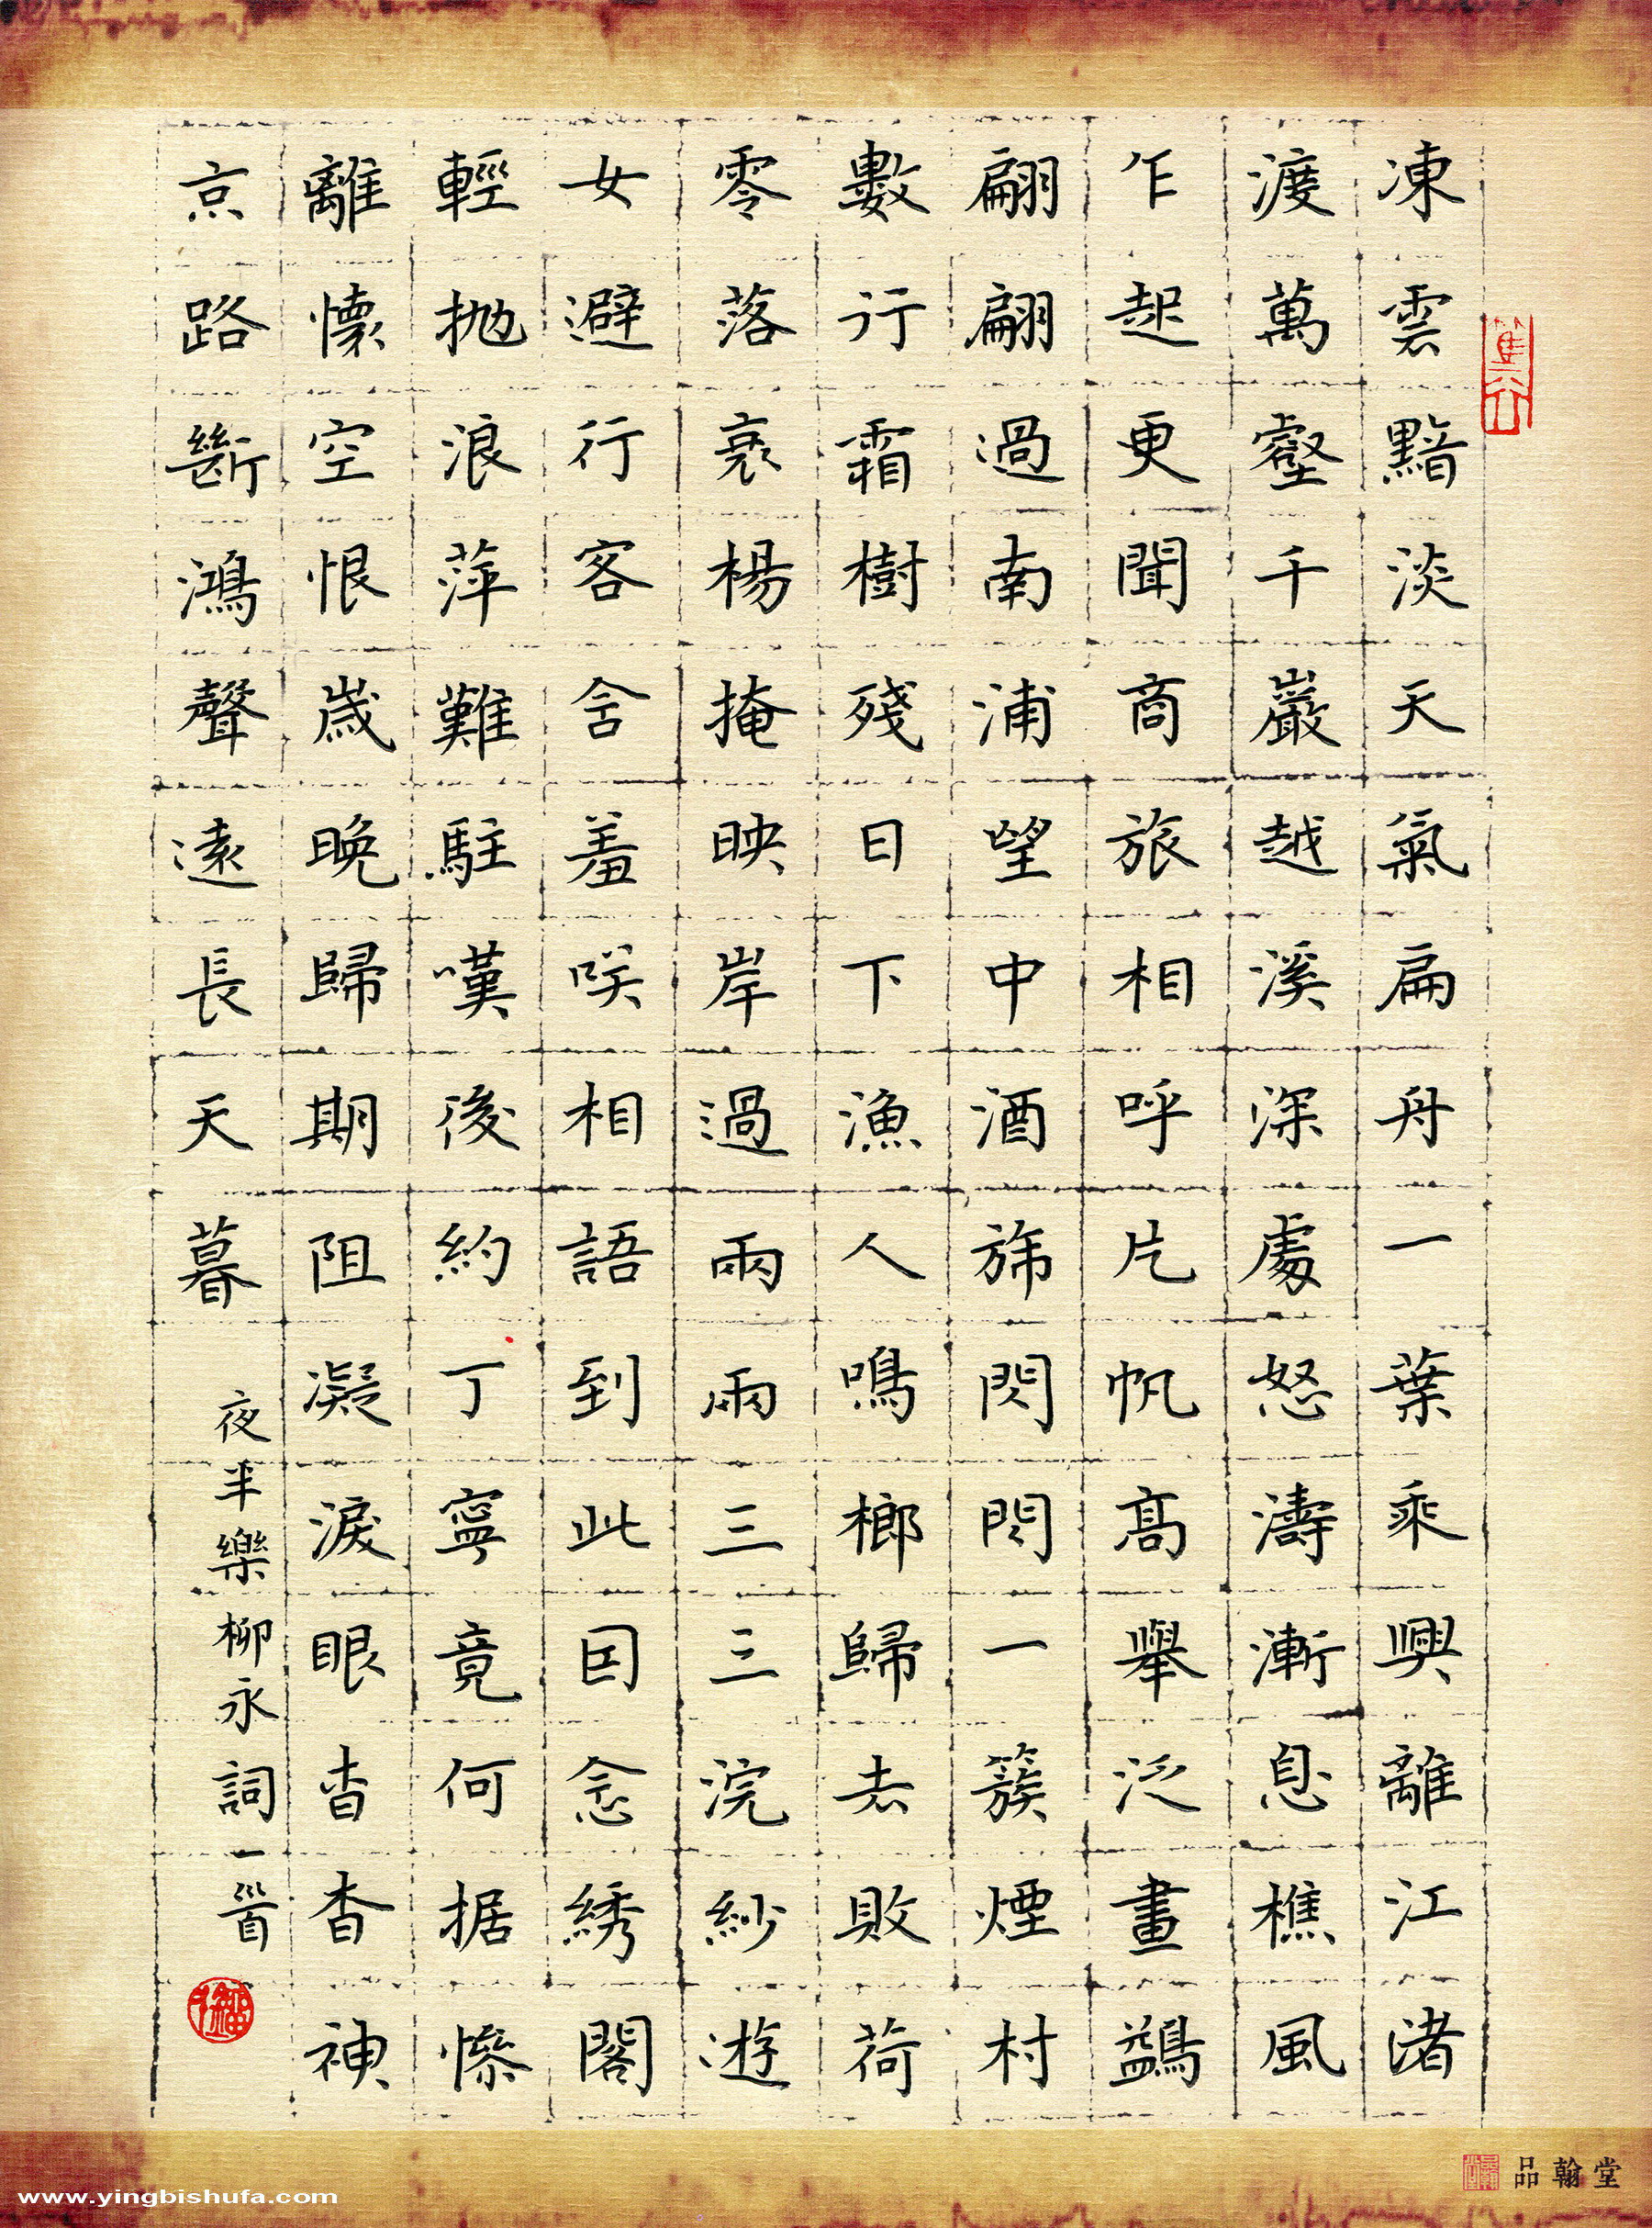 凍雲黯淡天氣扁舟一葉乘興離江渚
渡萬壑千巖越溪深處怒濤漸息樵風
乍起更聞商旅相呼片帆高舉泛畫鷁
翩翩過南浦望中酒旆閃閃一簇煙村
數行霜樹殘日下漁人鳴榔歸去敗荷
零落衰楊掩映岸過兩兩三三浣紗遊
女避行客含羞咲相語到此因念綉閣
輕抛浪萍難駐嘆後約丁寧竟何据慘
離懷空恨歲晚歸期阻凝淚眼杳杳神
京路斷鴻聲遠長天暮
夜半樂柳永詞一首
品翰堂
www.yingbishufa.com